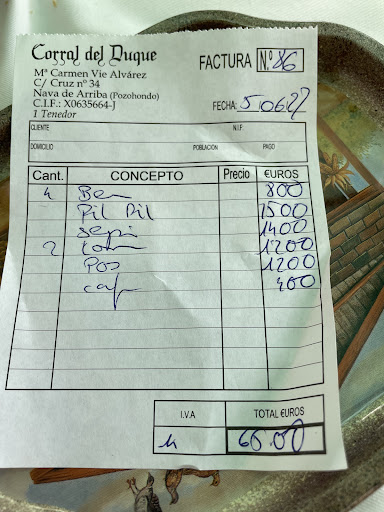 Corral del Duque
Mª Carmen Vie Alvárez
C/ Cruz nº 34
Nava de Arriba (Pozohondo)
C.I.F.: X0635664-J
1 Tenedor
FACTURA N.º 86
FECHA:
CLIENTE N.I.F.
DOMICILIO POBLACIÓN PAGO
Cant. CONCEPTO Precio €UROS
4 Ben 800
Pil Pil 1500
sepi 1400
2 tom 1200
Pos 1200
caf 400
I.V.A TOTAL €UROS
66.00